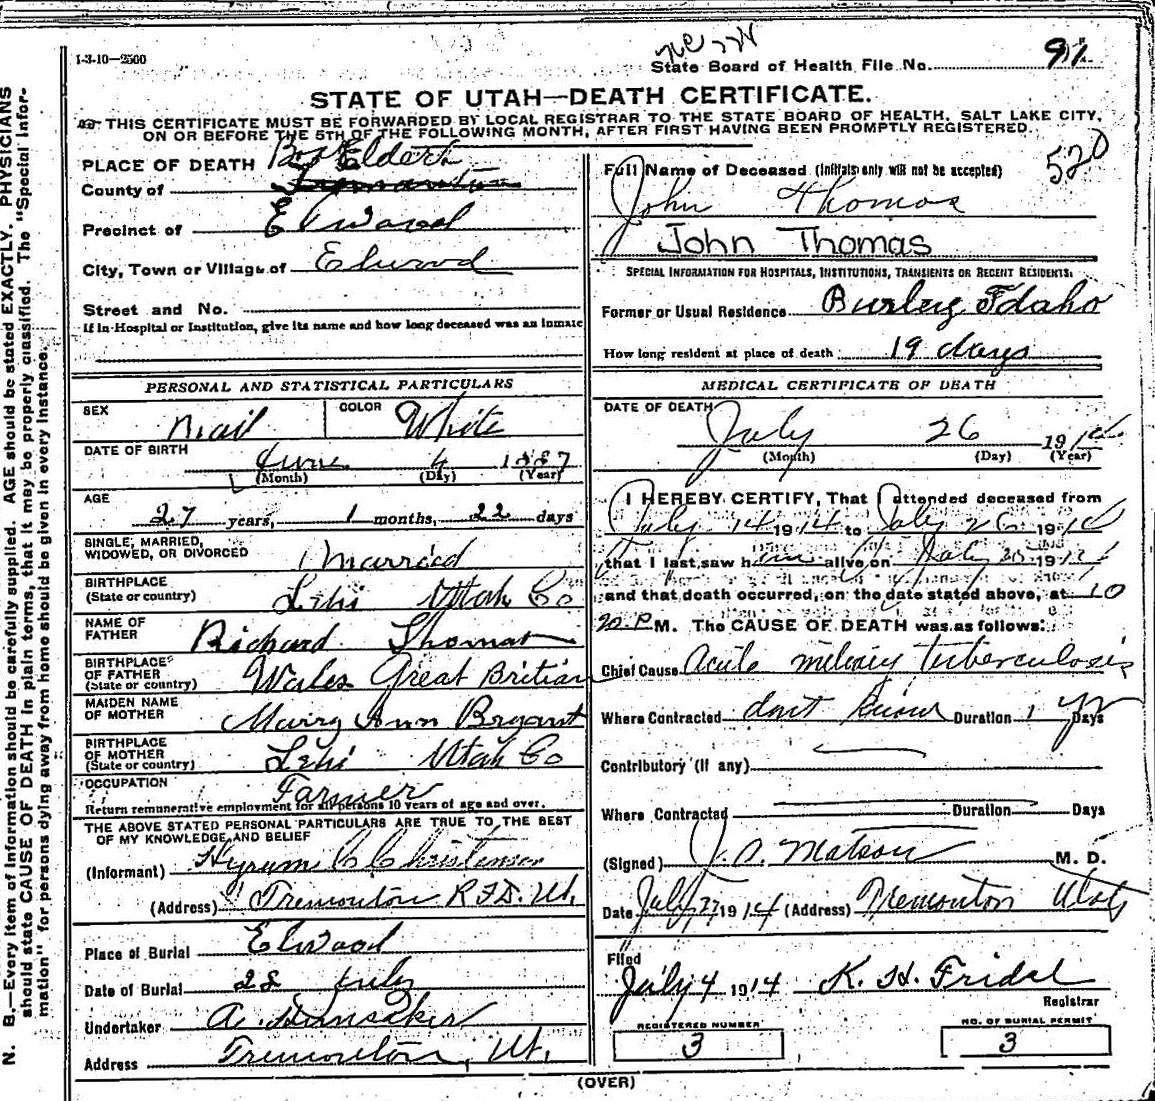 1-3-10—2500
State Board of Health File No. 91
STATE OF UTAH—DEATH CERTIFICATE.
THIS CERTIFICATE MUST BE FORWARDED BY LOCAL REGISTRAR TO THE STATE BOARD OF HEALTH, SALT LAKE CITY,
ON OR BEFORE THE 5TH OF THE FOLLOWING MONTH, AFTER FIRST HAVING BEEN PROMPTLY REGISTERED.
N. B.—Every item of information should be carefully supplied. AGE should be stated EXACTLY. PHYSICIANS
should state CAUSE OF DEATH in plain terms, that it may be properly classified. The "Special Infor-
mation" for persons dying away from home should be given in every instance.
PLACE OF DEATH Box Elder
County of Tremonton
Precinct of Elwood
City, Town or Village of Elwood
Street and No.
If in Hospital or Institution, give its name and how long deceased was an inmate
PERSONAL AND STATISTICAL PARTICULARS
SEX Mail COLOR White
DATE OF BIRTH June 4 1887
(Month) (Day) (Year)
AGE
27 years, 1 months, 22 days
SINGLE, MARRIED,
WIDOWED, OR DIVORCED Married
BIRTHPLACE
(State or country) Lehi Utah Co
NAME OF
FATHER Richard Thomas
BIRTHPLACE
OF FATHER
(State or country) Wales Great Britian
MAIDEN NAME
OF MOTHER Mairy Ann Bryant
BIRTHPLACE
OF MOTHER
(State or country) Lehi Utah Co
OCCUPATION Farmer
Return remunerative employment for all persons 10 years of age and over.
THE ABOVE STATED PERSONAL PARTICULARS ARE TRUE TO THE BEST
OF MY KNOWLEDGE AND BELIEF
(Informant) Hyrum C Christensen
(Address) Tremonton R.F.D. Ut.
Place of Burial Elwood
Date of Burial 28 July
Undertaker A. Hunsaker
Address Tremonton, Ut.
520
Full Name of Deceased (Initials only will not be accepted)
John Thomas
John Thomas
SPECIAL INFORMATION FOR HOSPITALS, INSTITUTIONS, TRANSIENTS OR RECENT RESIDENTS:
Former or Usual Residence Burley Idaho
How long resident at place of death 19 days
MEDICAL CERTIFICATE OF DEATH
DATE OF DEATH
July 26 1914
(Month) (Day) (Year)
I HEREBY CERTIFY, That I attended deceased from
July 14 1914 to July 26 1914
that I last saw him alive on July 1914
and that death occurred, on the date stated above, at 10
20 P. M. The CAUSE OF DEATH was as follows:
Chief Cause Acute miliary tuberculosis
Where Contracted dont know Duration 1 yr Days
Contributory (if any)
Where Contracted Duration Days
(Signed) J. A. Matson M. D.
Date July 27 1914 (Address) Tremonton Utah
Filed
July 4 1914 K. H. Fridal
Registrar
REGISTERED NUMBER
3
NO. OF BURIAL PERMIT
3
(OVER)